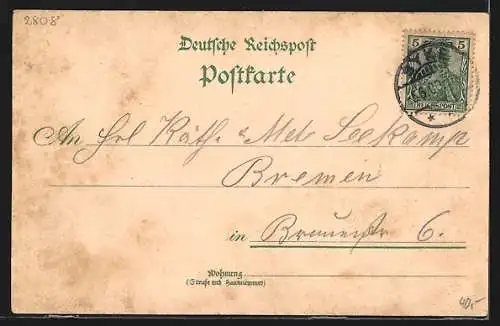 2808
5 5
REICHSPOST
Deutsche Reichspost
Postkarte
An Frl Käth. & Meta Seekamp
Bremen
in Braunstr 6.
Wohnung
(Straße und Hausnummer)
40,-